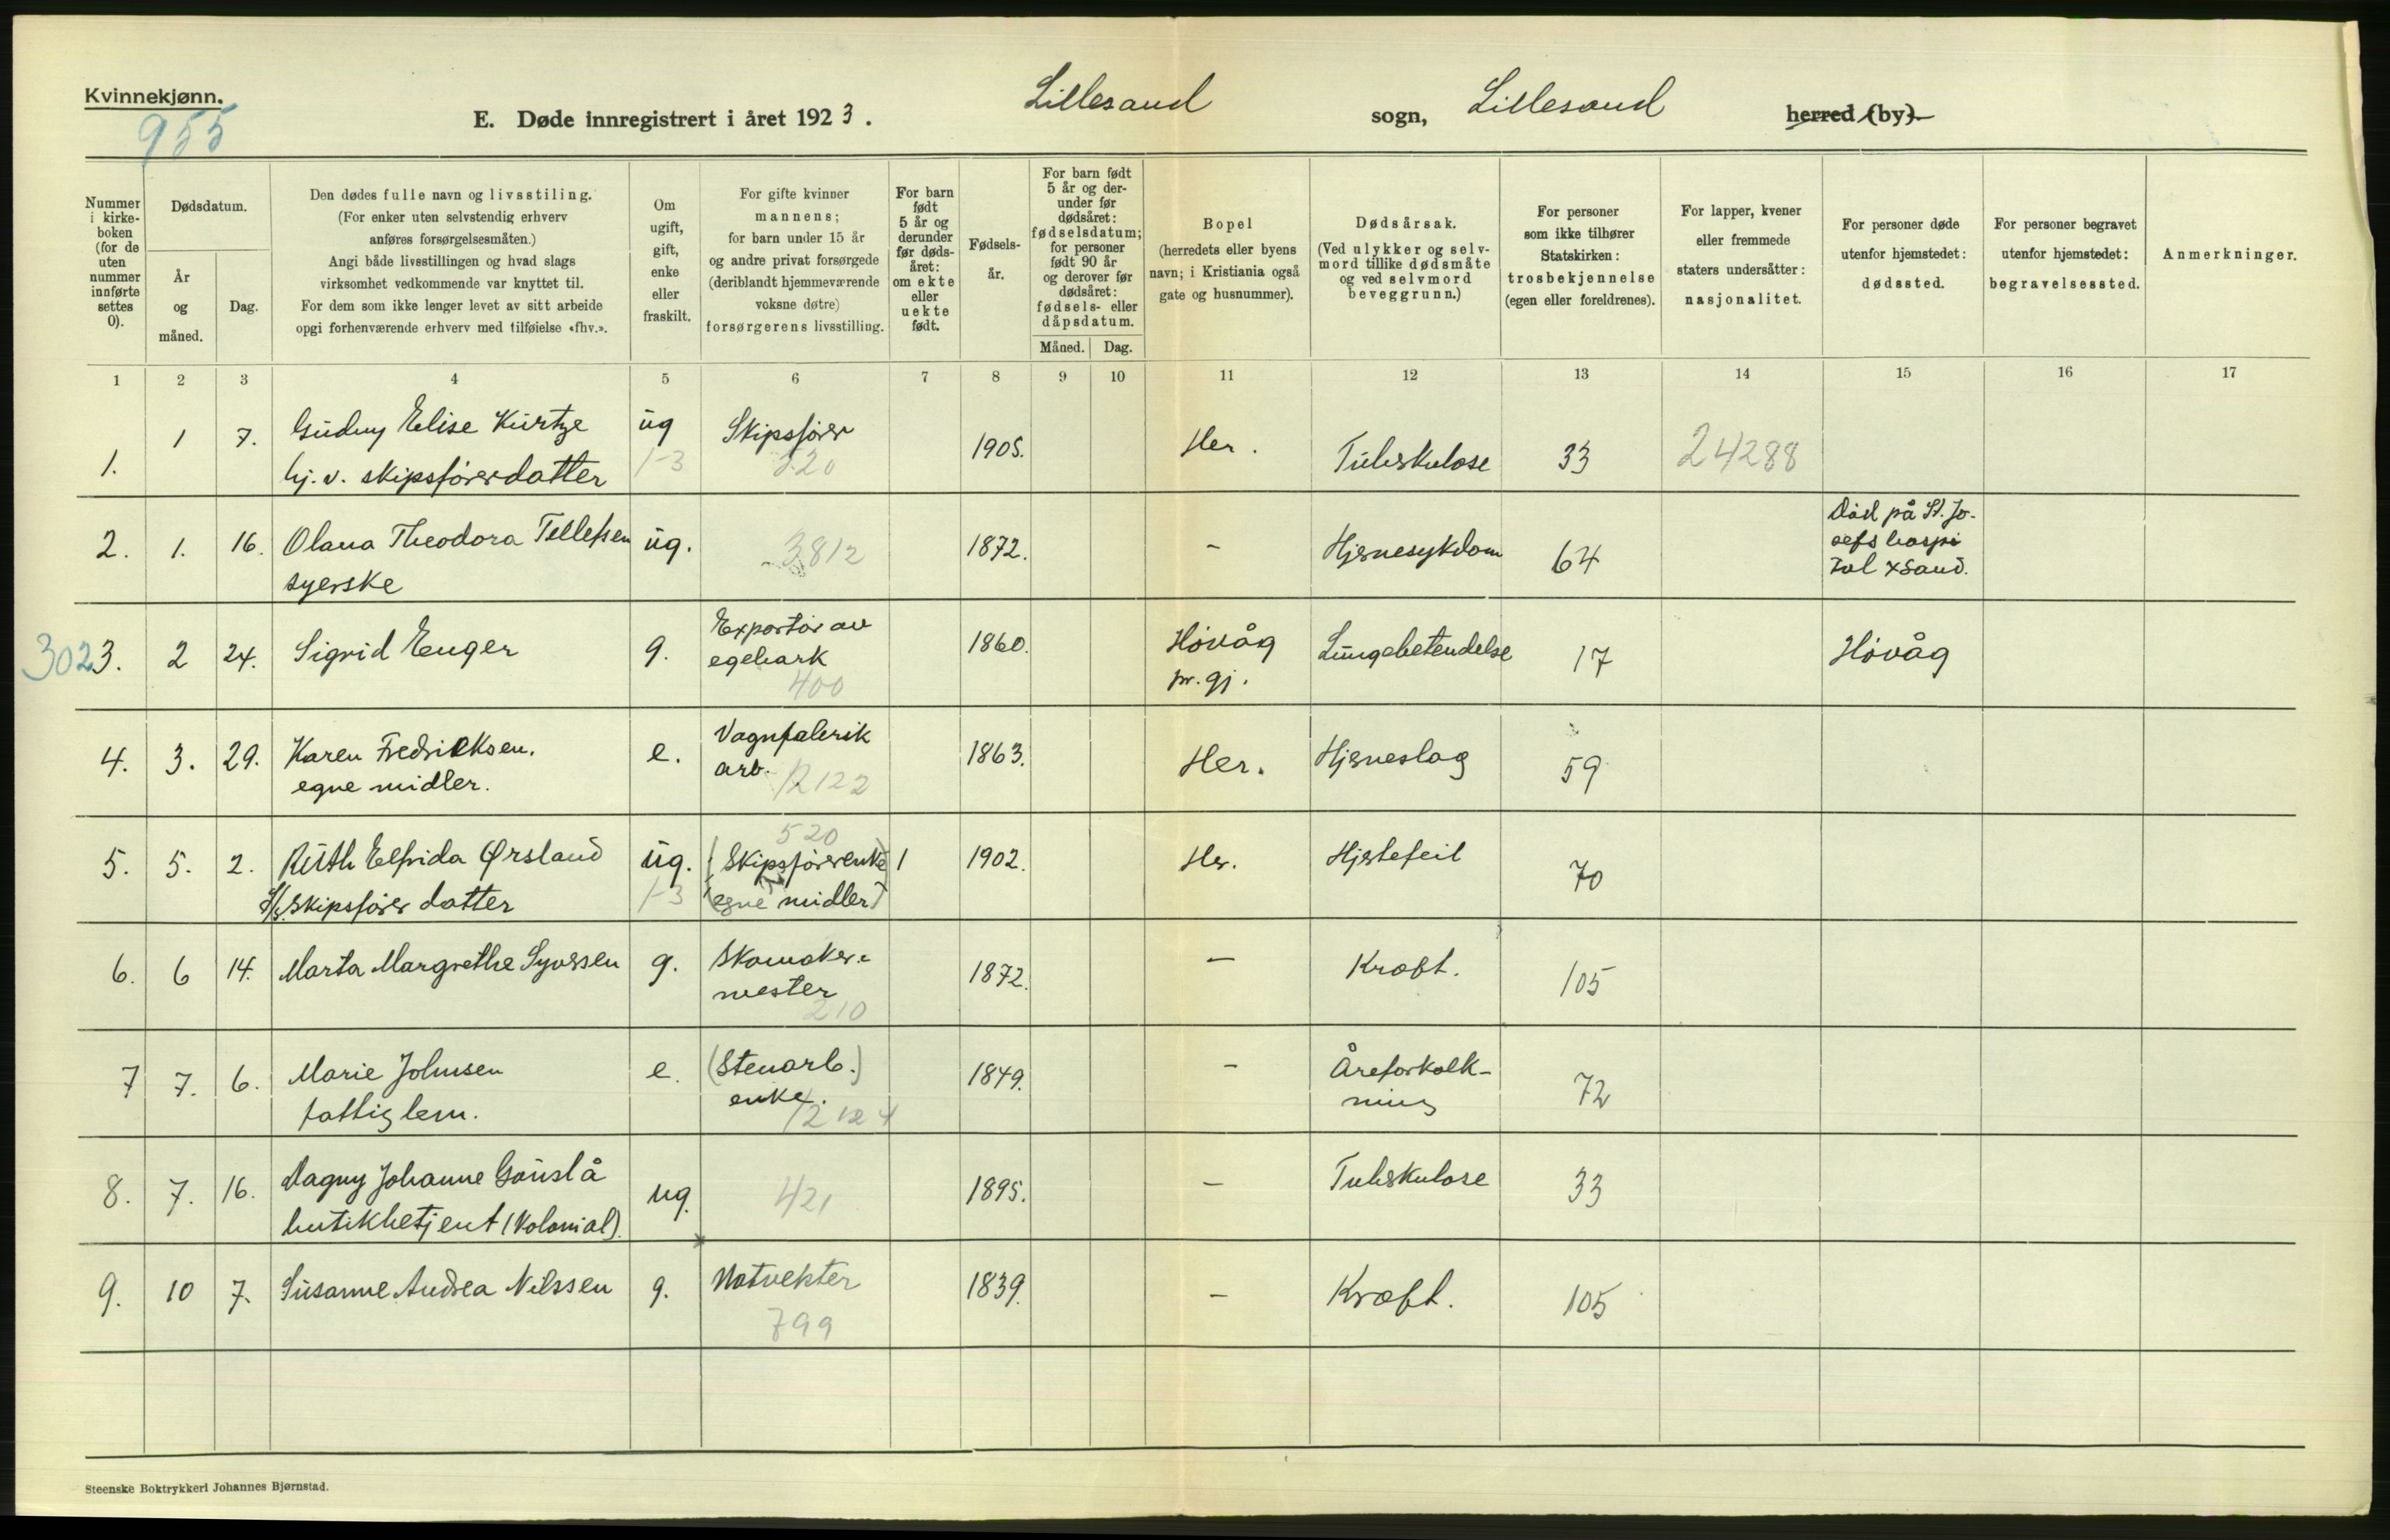 Kvinnekjønn.
955
E. Døde innregistrert i året 1923.
Lillesand sogn, Lillesand herred (by).
Nummer i kirke- boken (for de uten nummer innførte settes 0).
Dødsdatum.
År og måned.
Dag.
Den dødes fulle navn og livsstilling.
(For enker uten selvstendig erhverv
anføres forsørgelsesmåten.)
Angi både livsstillingen og hvad slags
virksomhet vedkommende var knyttet til.
For dem som ikke lenger levet av sitt arbeide
opgi forhenværende erhverv med tilføielse «fhv.».
Om ugift, gift, enke eller fraskilt.
For gifte kvinner
mannens;
for barn under 15 år
og andre privat forsørgede
(deriblandt hjemmeværende
voksne døtre)
forsørgerens livsstilling.
For barn født 5 år og derunder før døds- året: om ekte eller uekte født.
Fødsels- år.
For barn født 5 år og der- under før dødsåret: fødselsdatum; for personer født 90 år og derover før dødsåret: fødsels- eller dåpsdatum.
Måned. Dag.
Bopel
(herredets eller byens
navn; i Kristiania også
gate og husnummer).
Dødsårsak.
(Ved ulykker og selv-
mord tillike dødsmåte
og ved selvmord
beveggrunn.)
For personer
som ikke tilhører
Statskirken:
trosbekjennelse
(egen eller foreldrenes).
For lapper, kvener
eller fremmede
staters undersåtter:
nasjonalitet.
For personer døde
utenfor hjemstedet:
dødssted.
For personer begravet
utenfor hjemstedet:
begravelsessted.
Anmerkninger.
1 2 3 4 5 6 7 8 9 10 11 12 13 14 15 16 17
1. 1 7. Gudny Elise Kurtze ug Skipsfører 1905. Her. Tuberkulose 33 24288
hj. v. skipsførerdatter 1-3 520
2. 1. 16. Olava Theodora Tellefsen ug. 3812 1872. - Hjernesykdom 64 Död på St. Jo-
syerske sefs hospi
tal Xsand.
302 3. 2 24. Sigrid Enger g. Exportør av 1860. Høvåg Lungebetendelse 17 Høvåg
egebark pr. gj.
400
4. 3. 29. Karen Fredriksen. e. Vognfabrik 1863. Her. Hjerneslag 59
egne midler. arb. 12122
520
5. 5. 2. Ruth Elfrida Ørsland ug. (Skipsførerenke 1 1902. Her. Hjertefeil 70
Skipsfører datter 1-3 (egne midler)
6. 6 14. Marta Margrethe Syversen g. Skomaker- 1872. - Kræft. 105
mester
210
7 7. 6. Marie Johnsen e. (Stenarb.) 1849. - Åreforkalk-
fattiglem. enke. 12124 ning 72
8. 7. 16. Dagny Johanne Gauslå ug. 421 1895. - Tuberkulose 33
butikbetjent (Kolonial).
9. 10 7. Susanne Andrea Nilssen g. Natvekter 1839. - Kræft. 105
799
Steenske Boktrykkeri Johannes Bjørnstad.